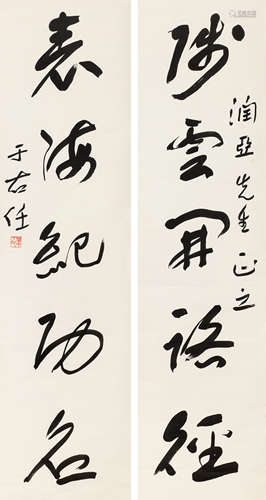 雲開路徑
潤亞先生正之
表海紀功名
于右任